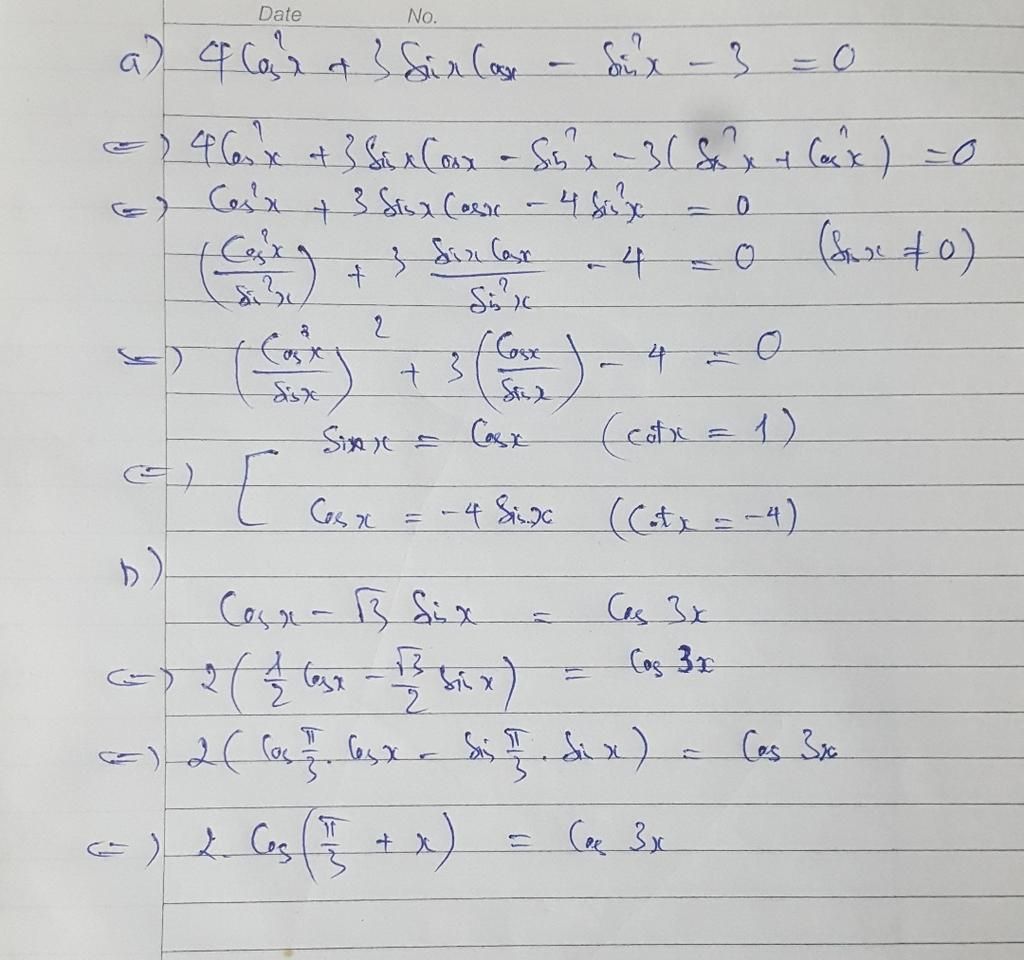 Date No.
a) 4 Cos²x + 3 Sin x Cosx - Sin²x - 3 = 0
<=> 4 Cos²x + 3 Sin x Cosx - Sin²x - 3 ( Sin²x + Cos²x ) = 0
<=> Cos²x + 3 Sin x Cosx - 4 Sin²x = 0
(Cos²x / Sin²x) + 3 Sin x Cosx / Sin²x - 4 = 0 (Sin x ≠ 0)
<=> (Cos²x / Sin x)² + 3 (Cosx / Sin x) - 4 = 0
Sin x = Cosx (cotx = 1)
<=> [
Cosx = -4 Sin x (Cotx = -4)
b)
Cosx - √3 Sin x = Cos 3x
<=> 2 ( 1/2 Cosx - √3/2 Sin x ) = Cos 3x
<=> 2 ( Cos π/3 . Cosx - Sin π/3 . Sin x ) = Cos 3x
<=> 2. Cos ( π/3 + x ) = Cos 3x